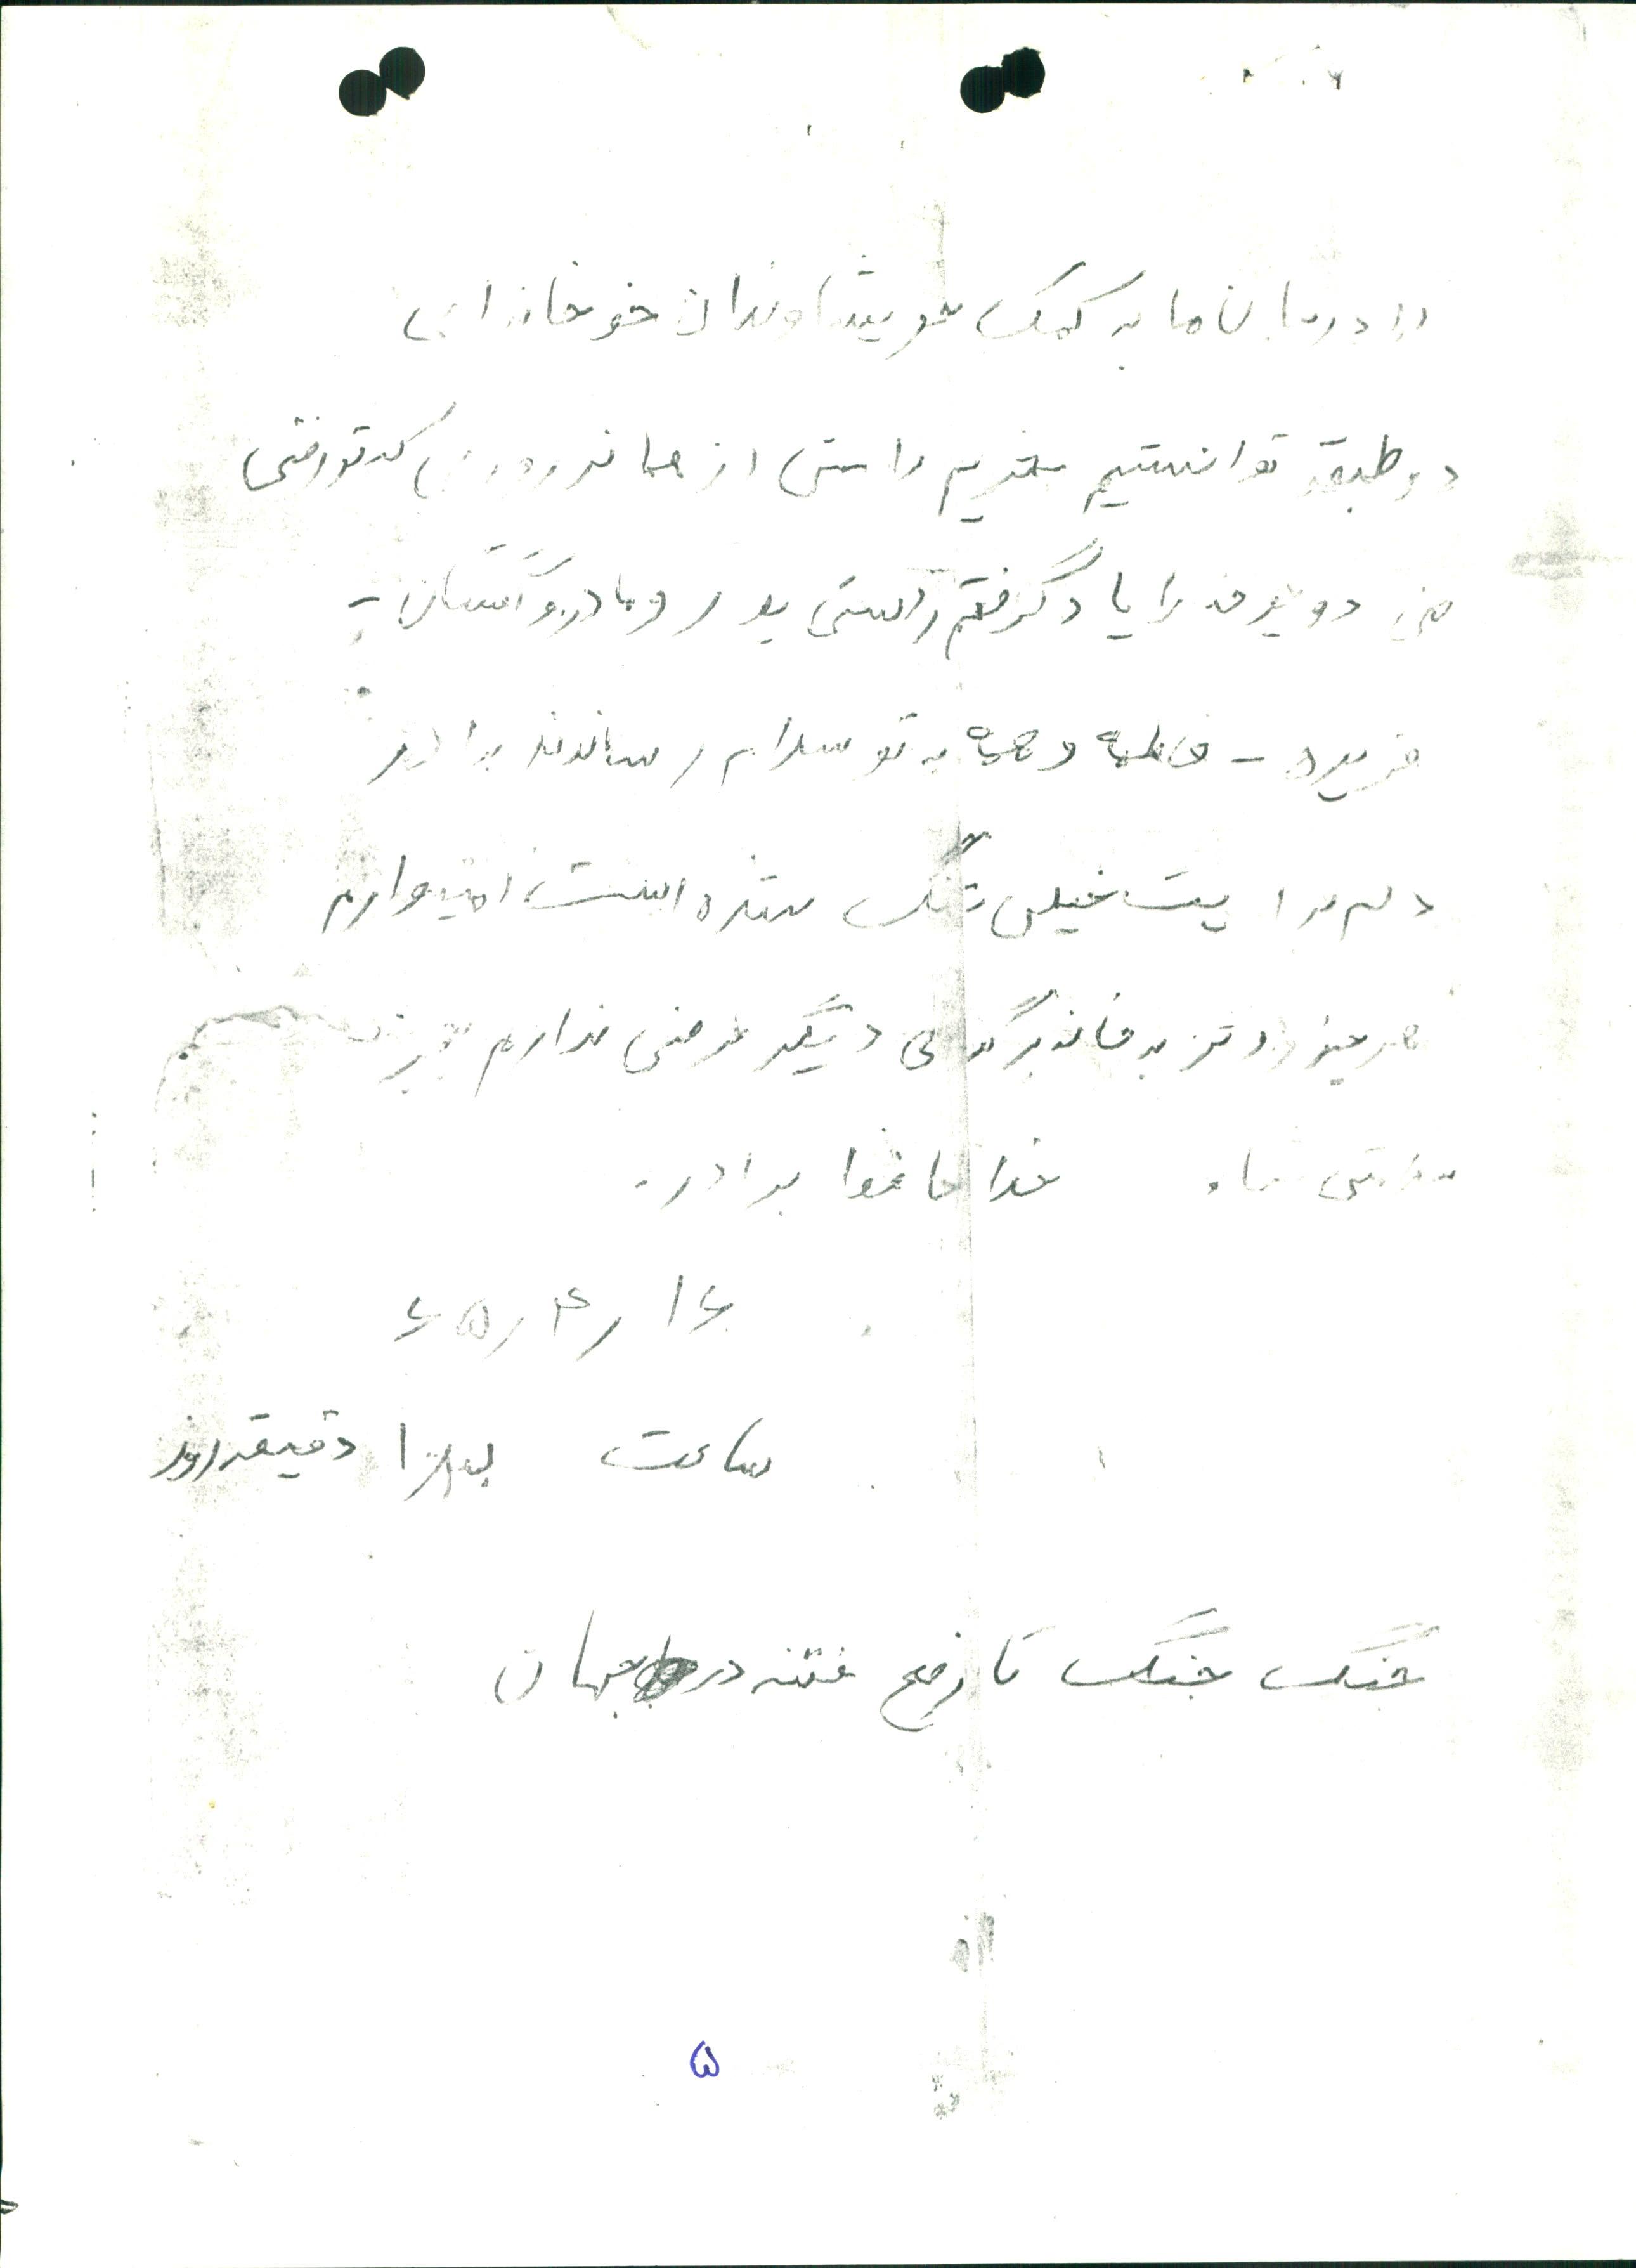 برادر جان ما به کمک خویشاوندان خو خانه ایی
دو طبقه توانستیم بخریم راستی از همان روزی که تو رفتی
من دوچرخه را یاد گرفتم راستی پدر و مادر و
فریده - فاطمه و همه به تو سلام رساندند برادر
دلم برایت خیلی تنگ شده است امیدوارم
هر چه زودتر به خانه برگردی دیگر عرضی ندارم بجز
سلامتی شما. خدا حافظ برادر.
۱۶ / ۴ / ۶۵
ساعت دقیقه روز
جنگ جنگ تا رفع فتنه در جهان
۵